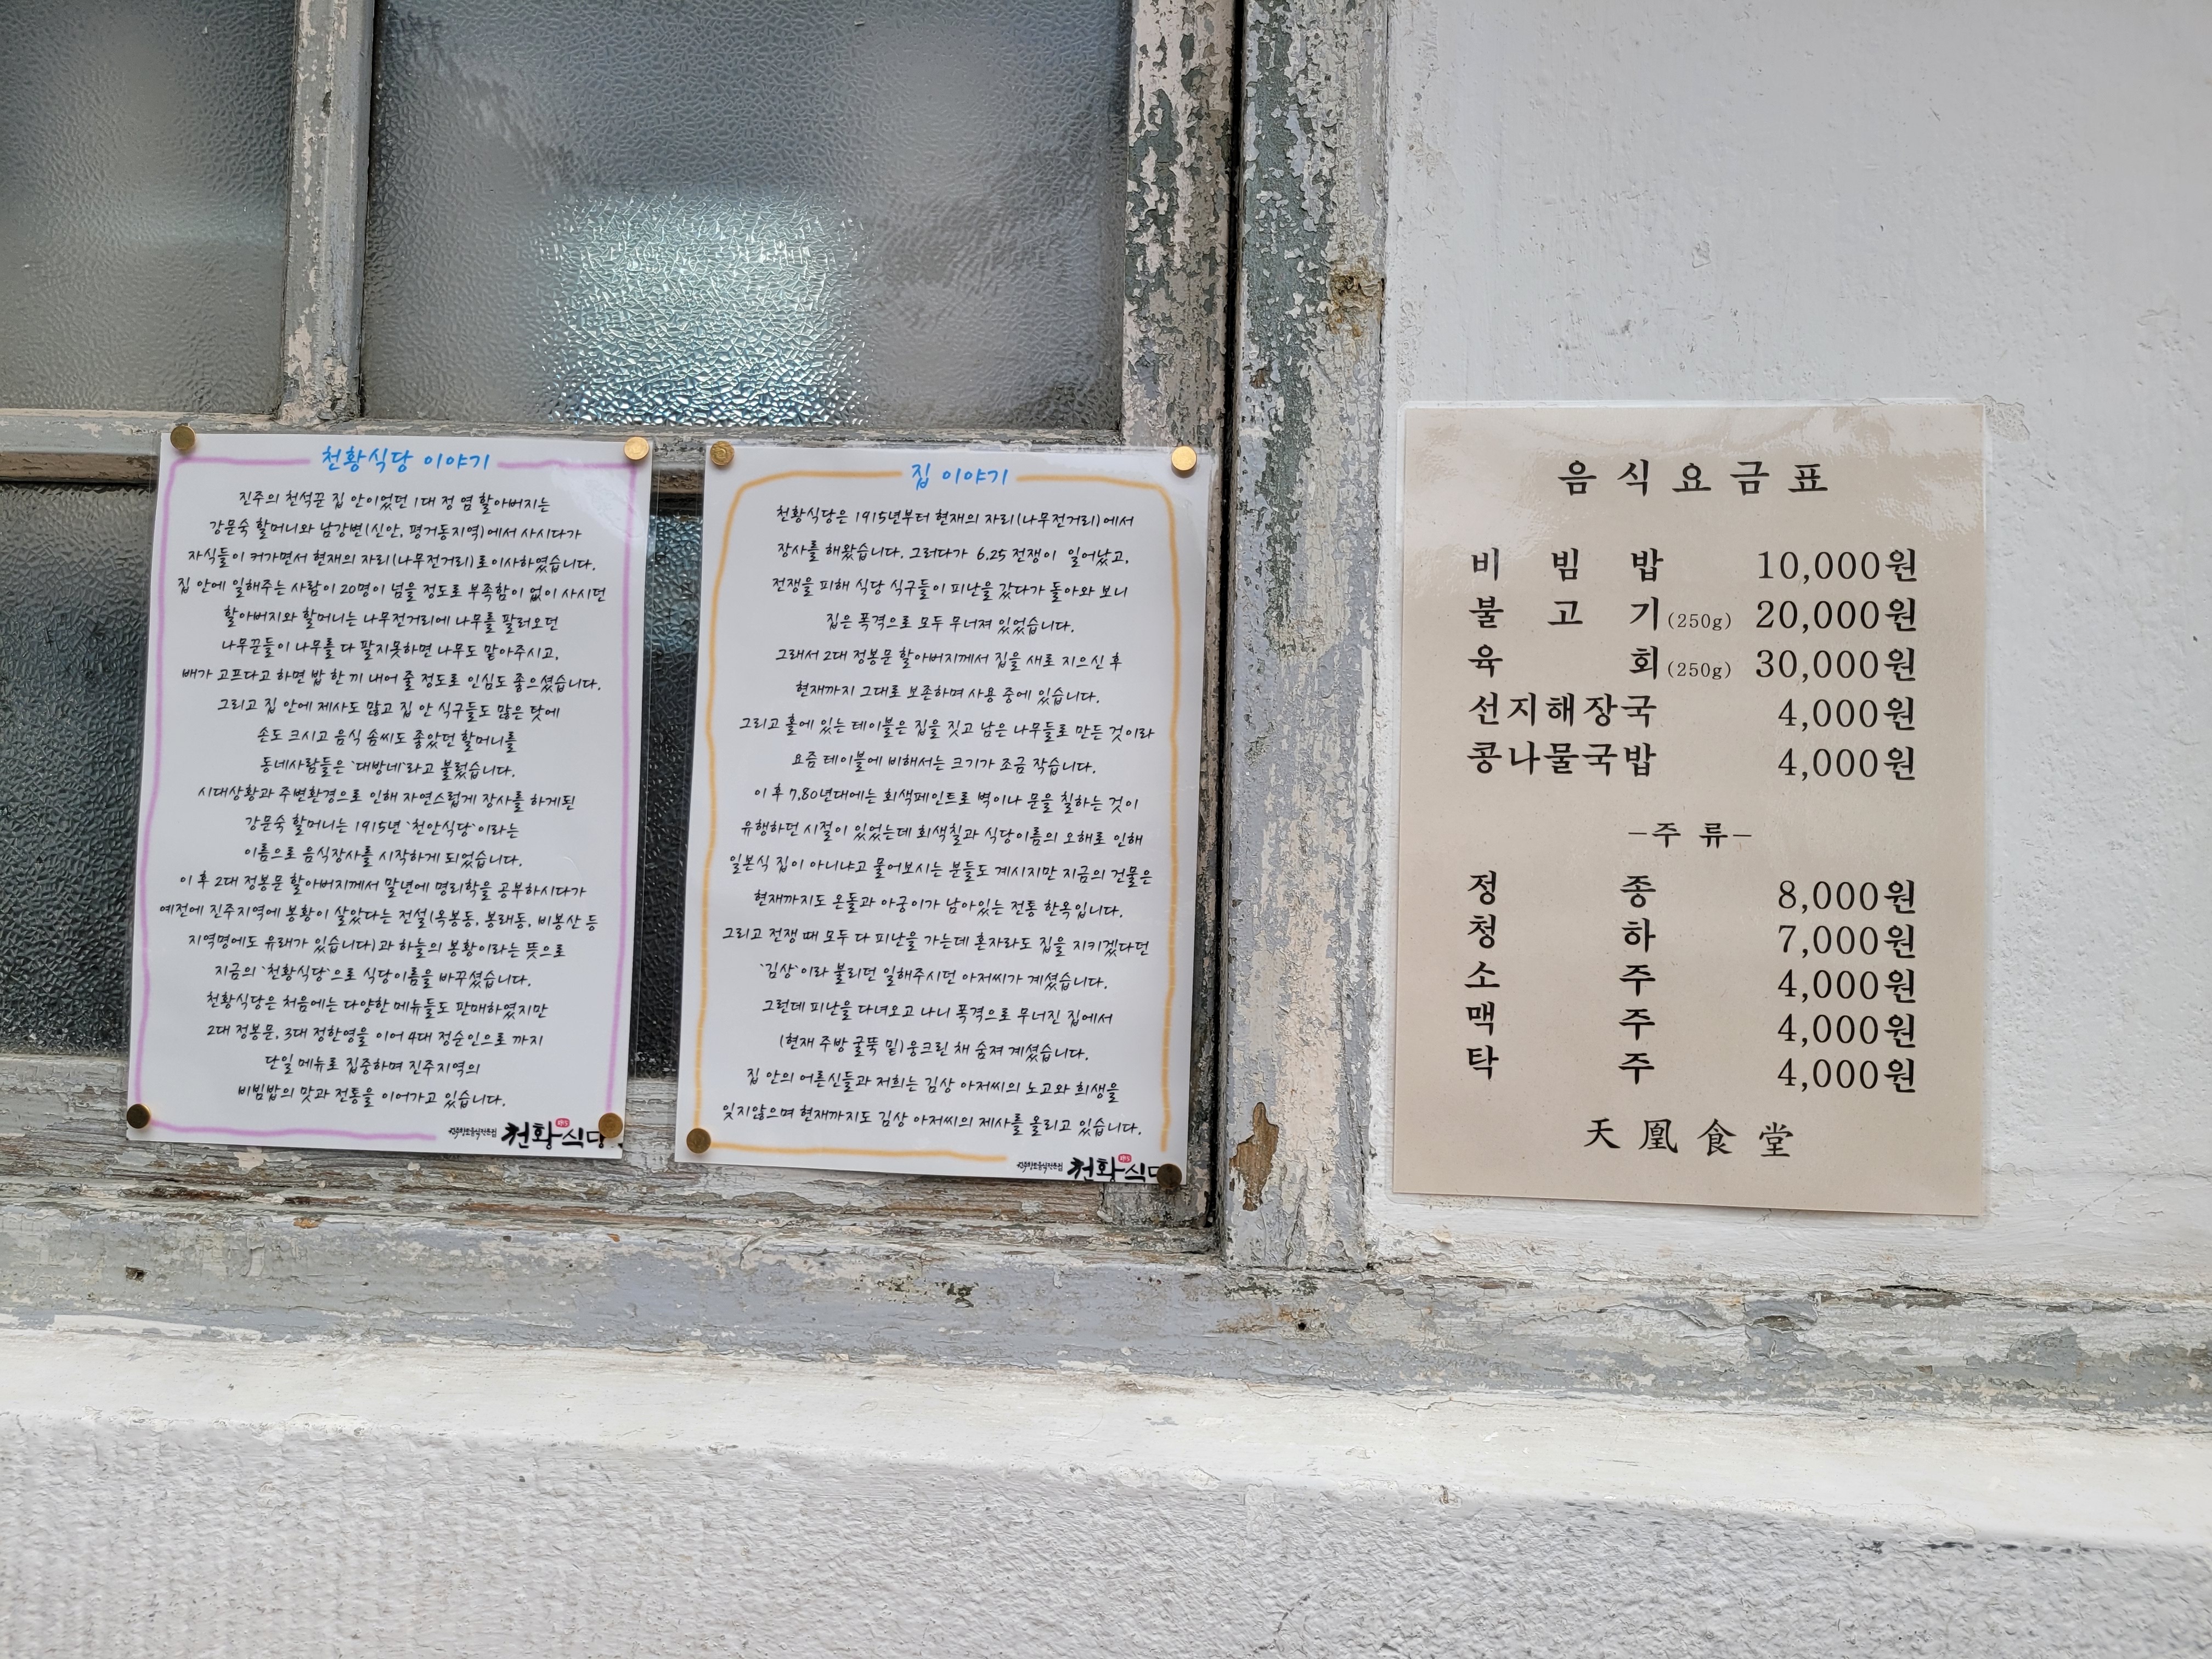 천황식당 이야기
진주의 천석꾼 집 안이었던 1대 정 염 할아버지는
강문숙 할머니와 남강변(신안, 평거동지역)에서 사시다가
자식들이 커가면서 현재의 자리(나무전거리)로 이사하였습니다.
집 안에 일해주는 사람이 20명이 넘을 정도로 부족함이 없이 사시던
할아버지와 할머니는 나무전거리에 나무를 팔러오던
나무꾼들이 나무를 다 팔지못하면 나무도 맡아주시고,
배가 고프다고 하면 밥 한 끼 내어 줄 정도로 인심도 좋으셨습니다.
그리고 집 안에 제사도 많고 집 안 식구들도 많은 탓에
손도 크시고 음식 솜씨도 좋았던 할머니를
동네사람들은 '대방네'라고 불렀습니다.
시대상황과 주변환경으로 인해 자연스럽게 장사를 하게된
강문숙 할머니는 1915년 '천안식당'이라는
이름으로 음식장사를 시작하게 되었습니다.
이 후 2대 정봉문 할아버지께서 말년에 명리학을 공부하시다가
예전에 진주지역에 봉황이 살았다는 전설(옥봉동, 봉래동, 비봉산 등
지역명에도 유래가 있습니다)과 하늘의 봉황이라는 뜻으로
지금의 '천황식당'으로 식당이름을 바꾸셨습니다.
천황식당은 처음에는 다양한 메뉴들도 판매하였지만
2대 정봉문, 3대 정한영을 이어 4대 정순인으로 까지
단일 메뉴로 집중하며 진주지역의
비빔밥의 맛과 전통을 이어가고 있습니다.
천황식당
집 이야기
천황식당은 1915년부터 현재의 자리(나무전거리)에서
장사를 해왔습니다. 그러다가 6.25 전쟁이 일어났고,
전쟁을 피해 식당 식구들이 피난을 갔다가 돌아와 보니
집은 폭격으로 모두 무너져 있었습니다.
그래서 2대 정봉문 할아버지께서 집을 새로 지으신 후
현재까지 그대로 보존하며 사용 중에 있습니다.
그리고 홀에 있는 테이블은 집을 짓고 남은 나무들로 만든 것이라
요즘 테이블에 비해서는 크기가 조금 작습니다.
이 후 7,80년대에는 회색페인트로 벽이나 문을 칠하는 것이
유행하던 시절이 있었는데 회색칠과 식당이름의 오해로 인해
일본식 집이 아니냐고 물어보시는 분들도 계시지만 지금의 건물은
현재까지도 온돌과 아궁이가 남아있는 전통 한옥입니다.
그리고 전쟁 때 모두 다 피난을 가는데 혼자라도 집을 지키겠다던
'김상'이라 불리던 일해주시던 아저씨가 계셨습니다.
그런데 피난을 다녀오고 나니 폭격으로 무너진 집에서
(현재 주방 굴뚝 밑)웅크린 채 숨져 계셨습니다.
집 안의 어른신들과 저희는 김상 아저씨의 노고와 희생을
잊지않으며 현재까지도 김상 아저씨의 제사를 올리고 있습니다.
천황식
음식요금표
비빔밥 10,000원
불고기(250g) 20,000원
육회(250g) 30,000원
선지해장국 4,000원
콩나물국밥 4,000원
-주 류-
정종 8,000원
청하 7,000원
소주 4,000원
맥주 4,000원
탁주 4,000원
天凰食堂